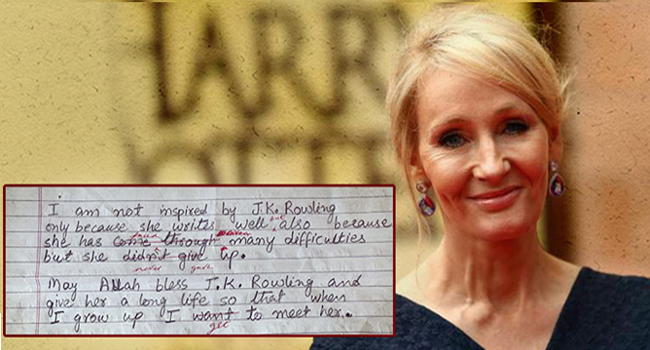 HARRY
I am not inspired by J.K. Rowling
but
only because she writes well, also because
she has come through many difficulties
but she didn't give up.
never gave
May Allah bless J.K. Rowling and
give her a long life so that when
I grow up I want to meet her.
get